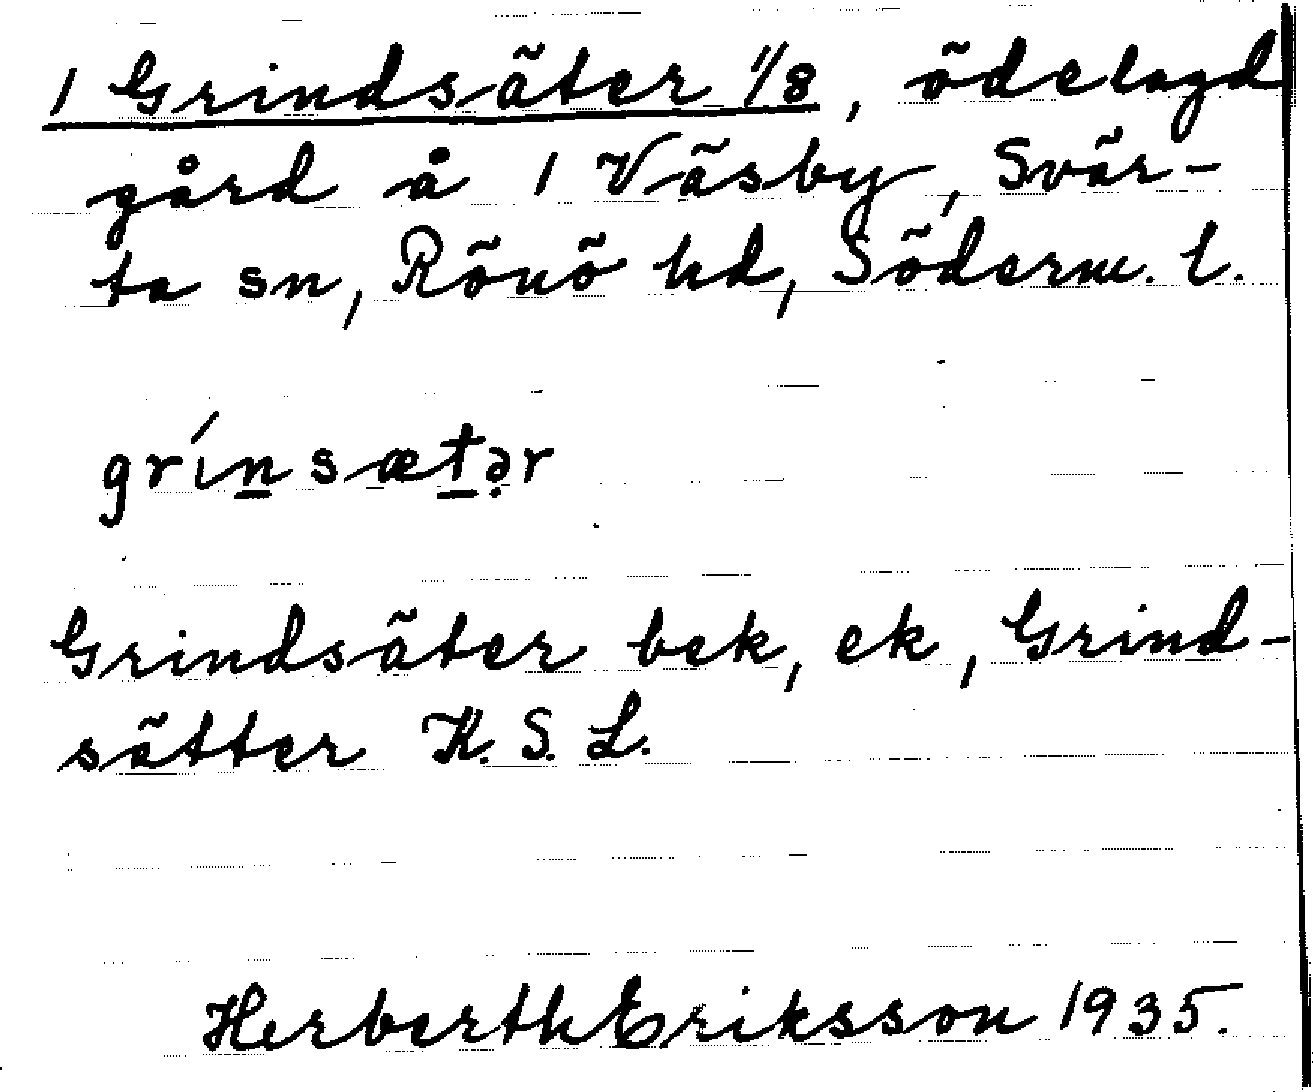 1 Grindsäter 1/8, ödelagd
gård å 1 Väsby, Svär-
ta sn, Rönö hd, Söderm. l.
grínsætər
Grindsäter bek, ek, Grind-
sätter K. S. L.
Herberth Eriksson 1935.